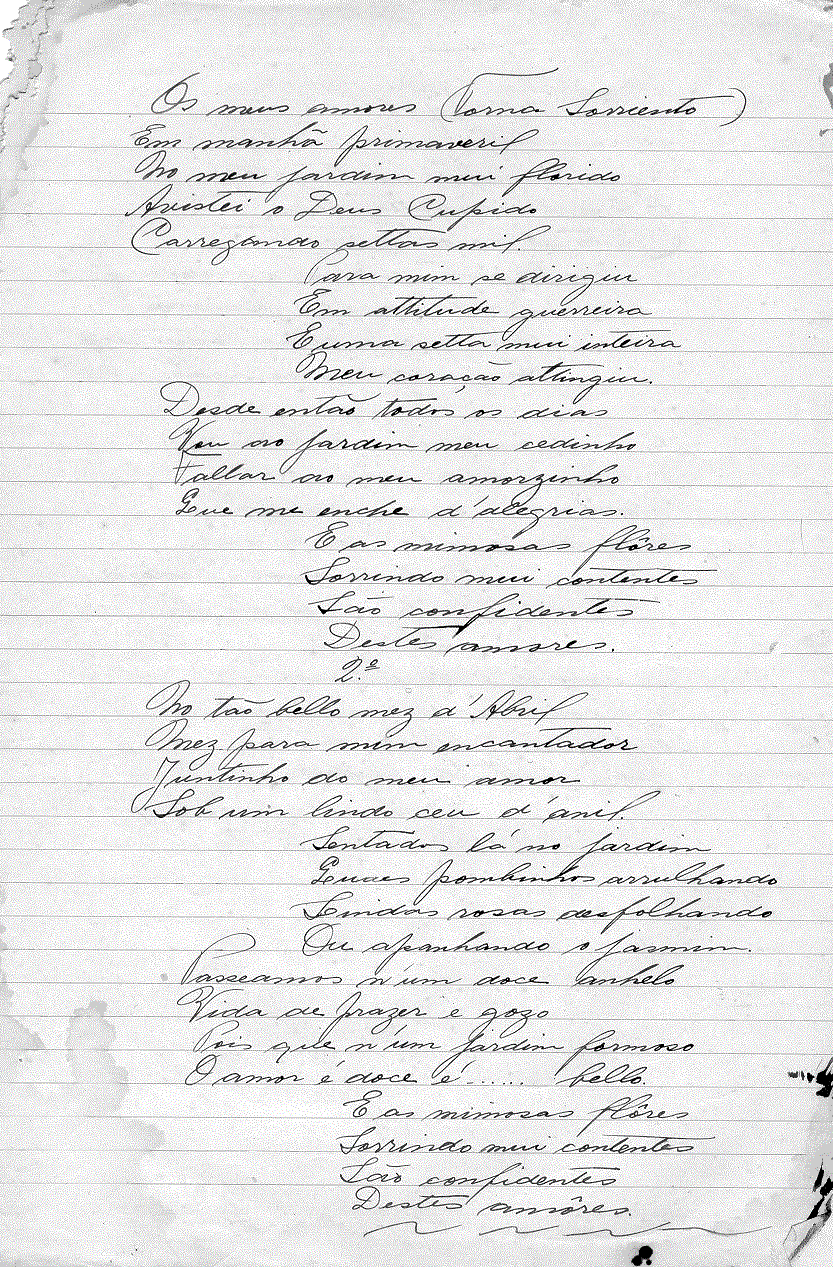 Os meus amores (Torna Sorriento)
Em manhã primaveril
No meu jardim mui florido
Avistei o Deus Cupido
Carregando settas mil.
Para mim se dirigiu
Em attitude guerreira
E uma setta mui inteira
Meu coração attingiu.
Desde então todos os dias
Vou ao jardim meu cedinho
Fallar ao meu amorzinho
Que me enche d'alegrias.
E as mimosas flôres
Sorrindo mui contentes
São confidentes
Destes amores.
2.ª
No tão bello mez d'Abril
Mez para mim encantador
Juntinho do meu amor
Sob um lindo ceu d'anil.
Sentados lá no jardim
Quaes pombinhos arrulhando
Lindas rosas desfolhando
Ou apanhando o jasmim.
Passeamos n'um doce anhelo
Vida de prazer e gozo
Pois que n'um jardim formoso
O amor é doce é...... bello.
E as mimosas flôres
Sorrindo mui contentes
São confidentes
Destes amôres.